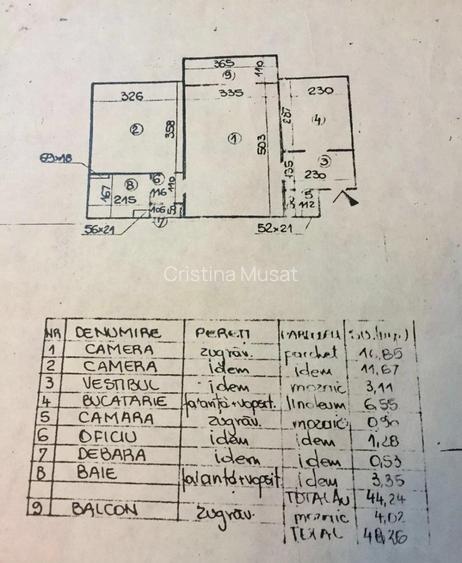 365
(9)
110
326
335
230
2
358
1
503
287
(4)
69x18
8
6
116
110
135
3
230
167
215
106
7
5
112
56x21
52x21
Cristina Musat
NR DENUMIRE PERETI S.U.(mp.)
1 CAMERA zugrăv. parchet 16,85
2 CAMERA idem idem 11,67
3 VESTIBUL idem mozaic 3,11
4 BUCATARIE faianță+vopsit. linoleum 6,55
5 CAMARA zugrăv. mozaic 0,90
6 OFICIU idem idem 1,28
7 DEBARA idem idem 0,53
8 BAIE faianță+vopsit. idem 3,35
TOTAL AU 44,24
9 BALCON zugrăv mozaic 4,02
TOTAL 48,26